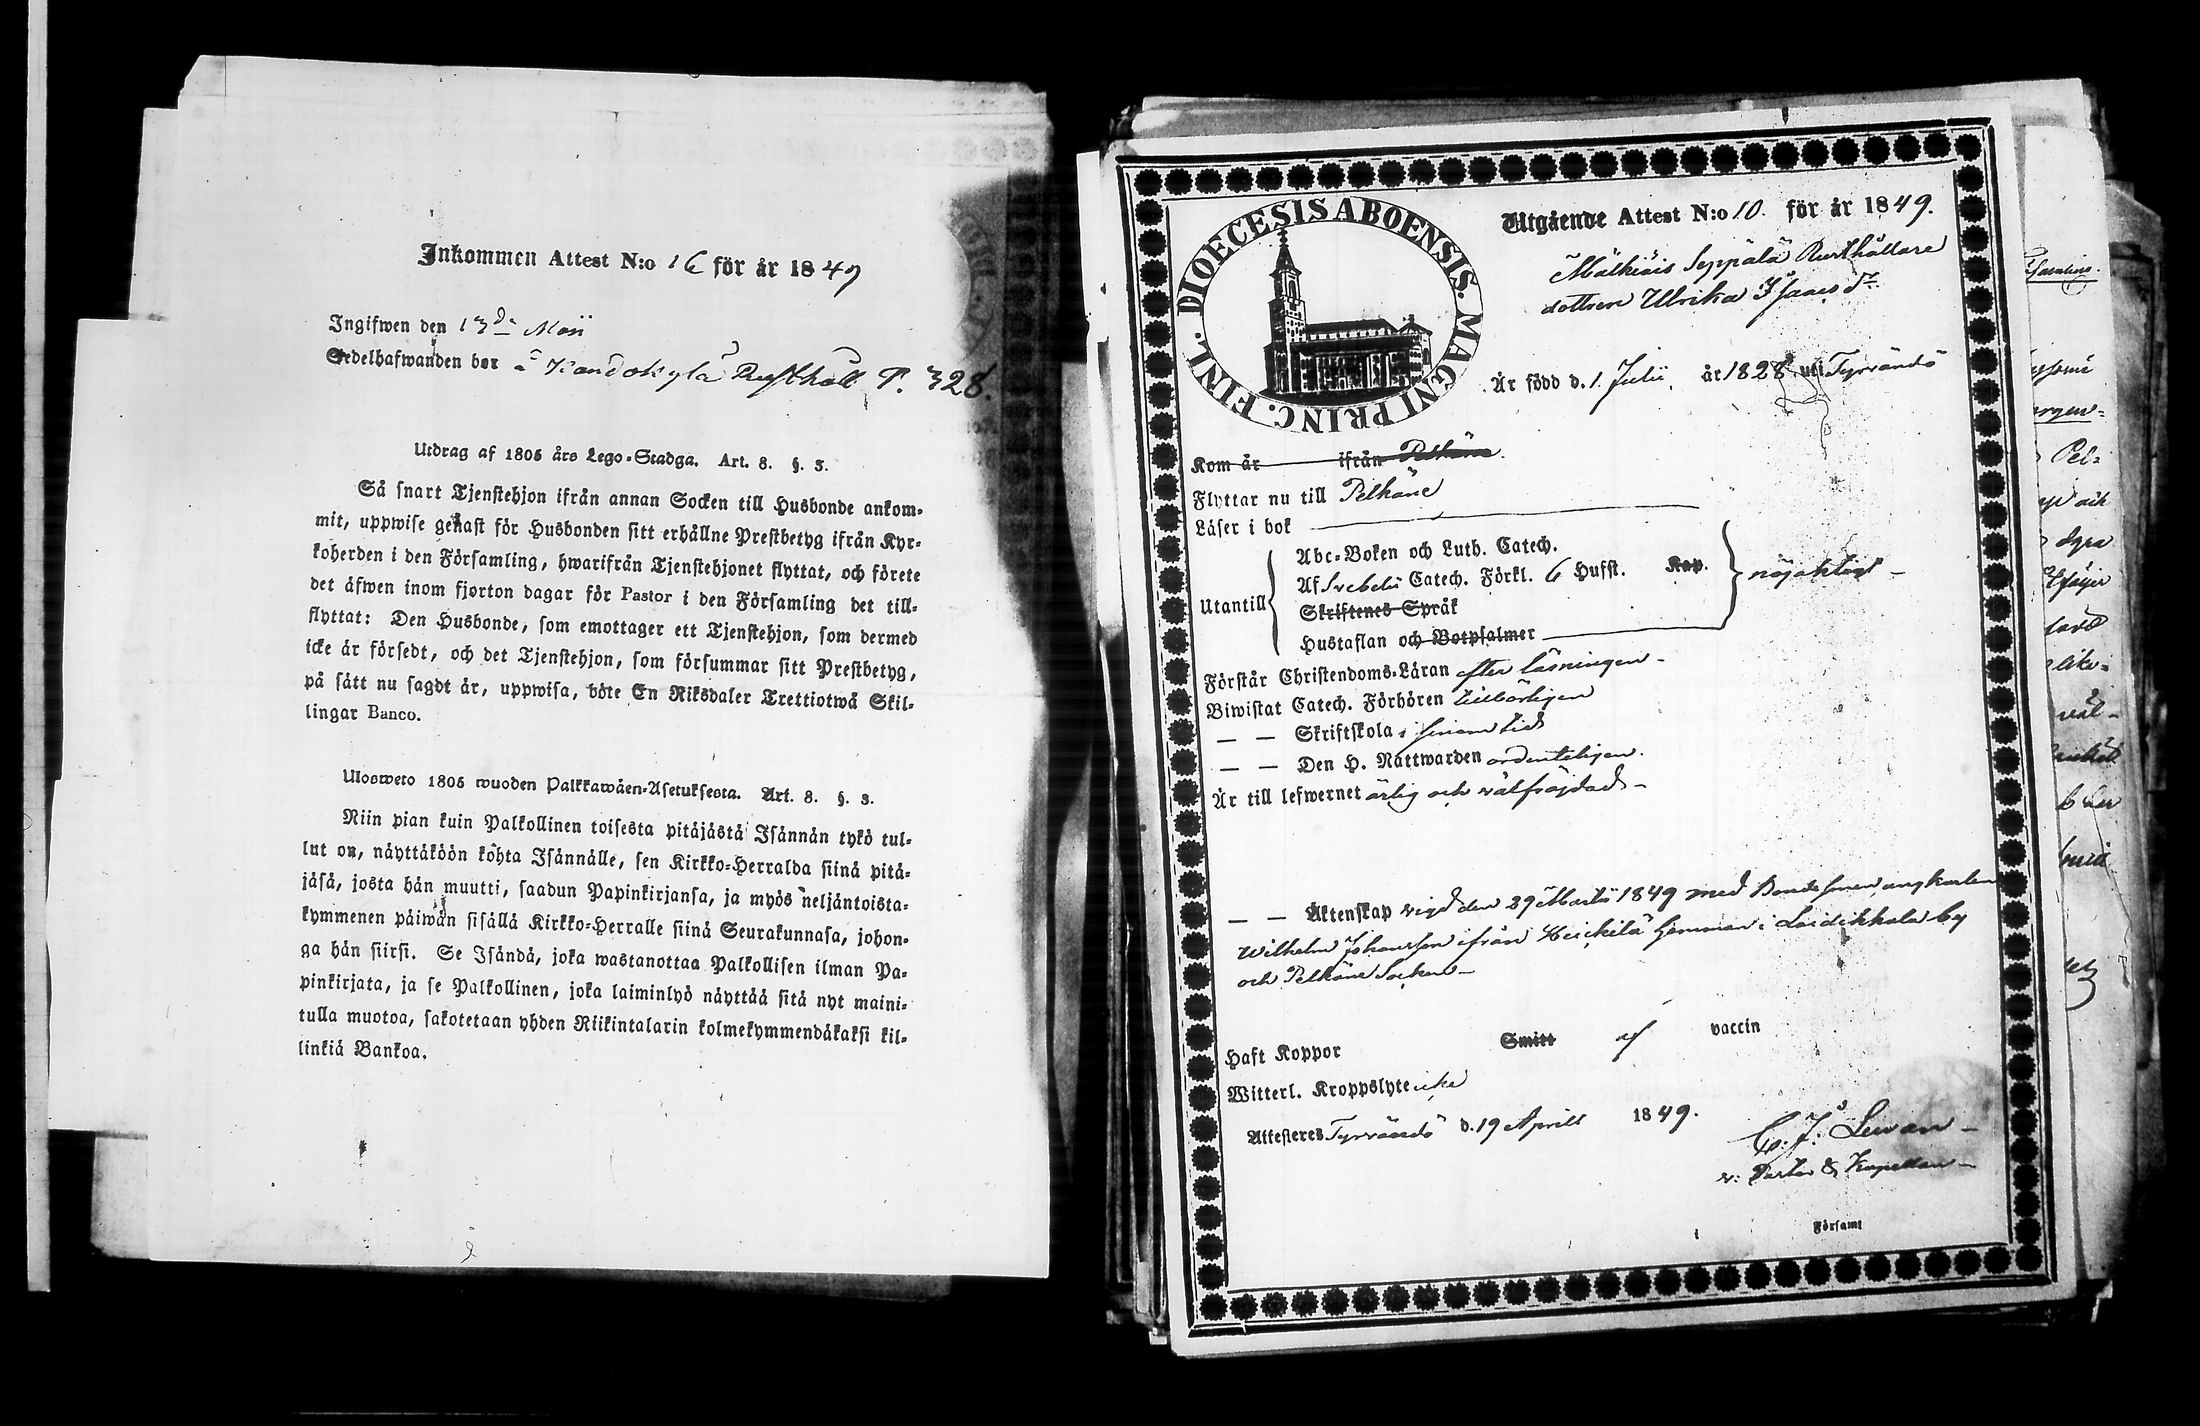 Inkommen Attest N:o 16 för år 1849
Ingifwen den 13de Maii
Sedelhafwanden bor å Kandokylä Rusthåll P. 328.
Utdrag af 1805 års Lego-Stadga. Art. 8. §. 3.
Så snart Tjenstehjon ifrån annan Socken till Husbonde ankom-
mit, uppwise genast för Husbonden sitt erhållne Prestbetyg ifrån Kyr-
koherden i den Församling, hwarifrån Tjenstehjonet flyttat, och förete
det äfwen inom fjorton dagar för Pastor i den Församling det till-
flyttat: Den Husbonde, som emottager ett Tjenstehjon, som dermed
icke är försedt, och det Tjenstehjon, som försummar sitt Prestbetyg,
på sätt nu sagdt är, uppwisa, böte En Riksdaler Trettiotwå Skil-
lingar Banco.
Ulosweto 1805 wuoden Palkkawäen-Asetuksesta. Art. 8. §. 3.
Niin pian kuin Palkollinen toisesta pitäjästä Isännän tykö tul-
lut on, näyttäköön kohta Isännälle, sen Kirkko-Herralda siinä pitä-
jäsä, josta hän muutti, saadun Papinkirjansa, ja myös neljäntoista-
kymmenen päiwän sisällä Kirkko-Herralle siinä Seurakunnasa, johon-
ga hän siirsi. Se Isändä, joka wastanottaa Palkollisen ilman Pa-
pinkirjata, ja se Palkollinen, joka laiminlyö näyttää sitä nyt maini-
tulla muotoa, sakotetaan yhden Riikintalarin kolmekymmendäkaksi kil-
linkiä Bankoa.
DIOECESIS ABOENSIS. MAGNI PRINC. FINL.
Utgående Attest N:o 10. för år 1849.
Mälkiäis Seppälä Rusthållare
dottren Ulrika Isaacsdr
Är född d. 1. Julii, år 1828 uti Tyrvändö
Kom år ifrån Pelkäne
Flyttar nu till Pelkäne
Läser i bok
Utantill
Abc-Boken och Luth. Catech.
Af Svebelii Catech. Förkl. 6 Hufst. Kap.
nöjaktigt
Skriftenes Språk
Hustaflan och Botpsalmer
Förstår Christendoms-Läran efter läsningen
Biwistat Catech. Förhören tillbörligen
— — Skriftskola i sinom tid
— — Den H. Nattwarden ordenteligen.
Är till lefwernet ärlig och välfräjdad
— — Äktenskap vigd den 29 Martii 1849 med Bondesonen ungkarlen
Wilhelm Johansson ifrån Heickilä hemman i Laidikkala by
och Pelkäne Socken
Haft Koppor Smitt af vaccin
Witterl. Kroppslyte icke
Attesteres Tyrvändö d. 19 Aprill 1849.
v: Pastor & Kapellan
Församl